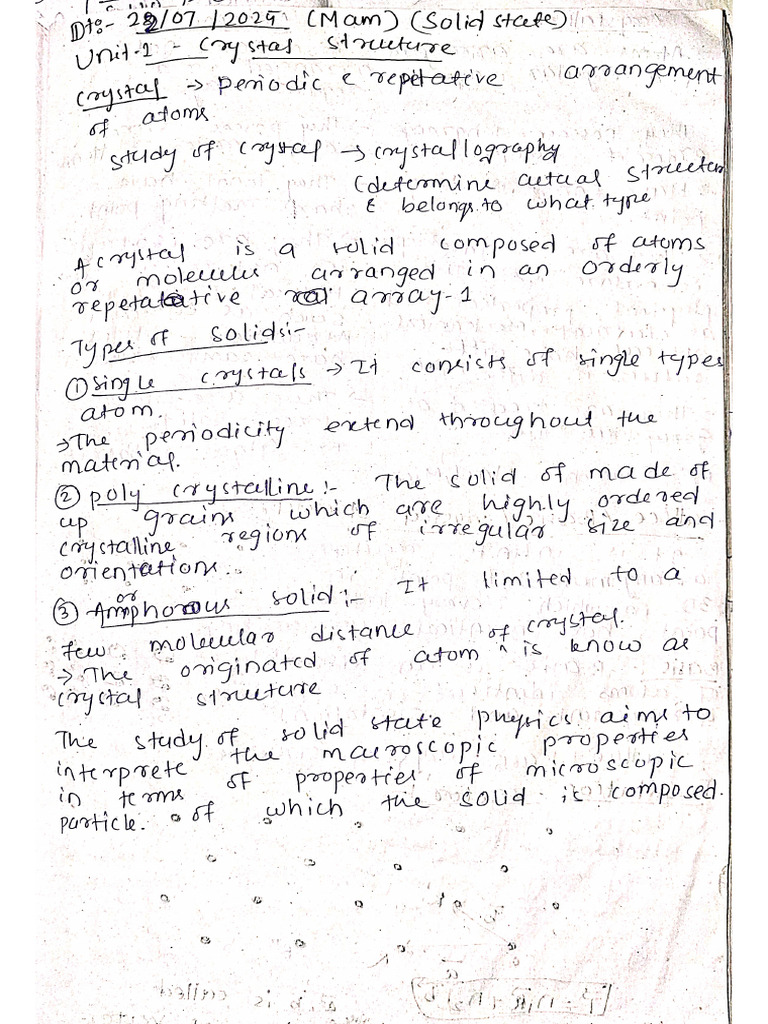 Dt:- 22/07/2025 (Mam) (Solid state)
Unit-1 - Crystal structure
Crystal → Periodic & repitative arrangement
of atoms
study of crystal → crystallography
(determine actual structure
& belongs to what type
A crystal is a solid composed of atoms
or molecules arranged in an orderly
repetative array-1
Types of solids:-
① Single crystals → It consists of single types
atom.
→ The periodicity extend throughout the
material.
② poly crystalline:- The solid of made of
up grains which are highly ordered
crystalline regions of irregular size and
orientations.
③ Amorphorous solid:- It limited to a
few molecular distance
→ The originated of atom ^ of crystal. is know as
crystal structure
The study of solid state physics aims to
interprete the macroscopic properties
in terms of properties of microscopic
particle. of which the solid is composed.